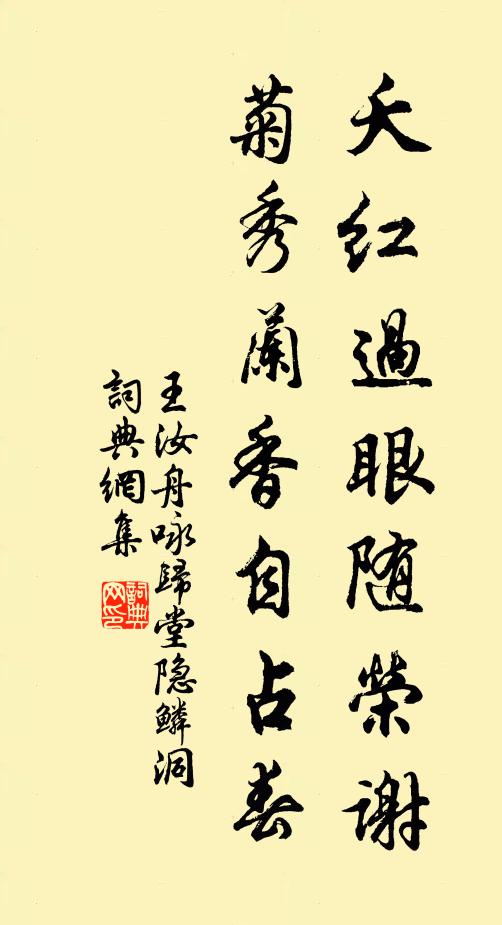 夭红過眼随榮谢
菊秀蘭香自占春
王汝舟咏歸堂隐鳞洞
詞典網集
詞典网印